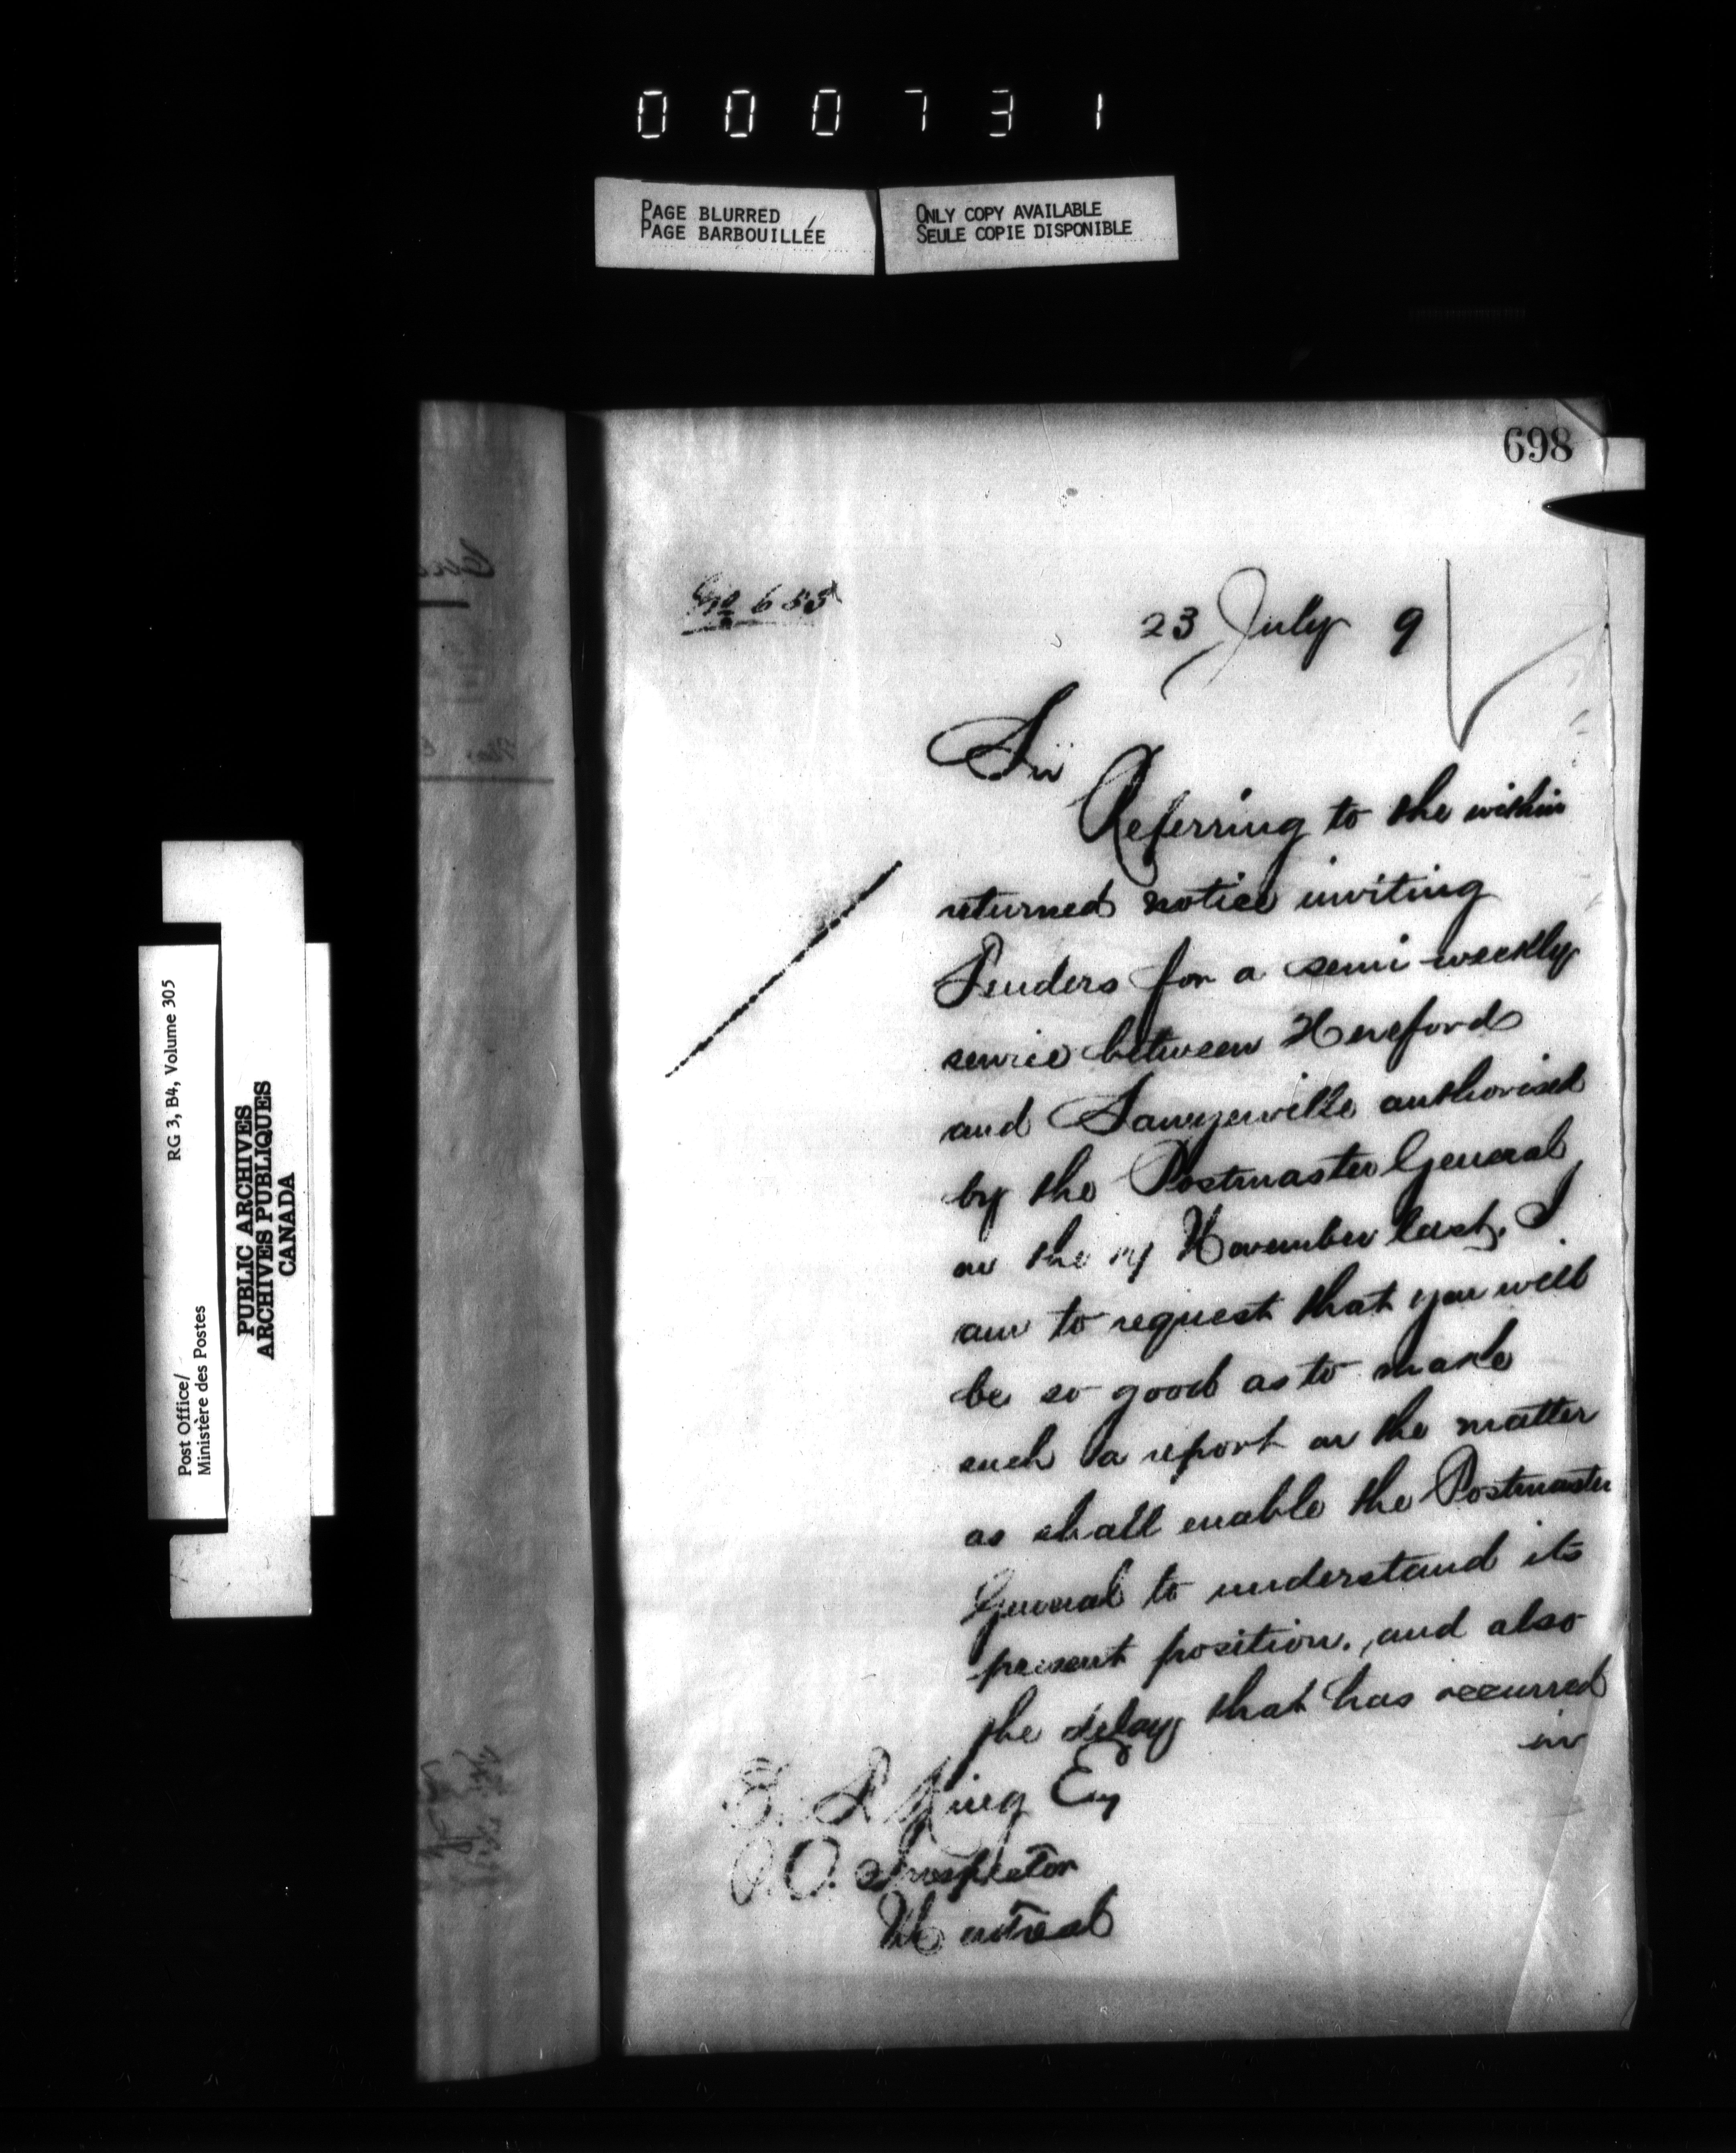 000731
PAGE BLURRED
PAGE BARBOUILLÉE
ONLY COPY AVAILABLE
SEULE COPIE DISPONIBLE
698
No 655
23 July 9
Sir
Referring to the within
returned notice inviting
Tenders for a semi-weekly
service between Hereford
and Sawyerville authorised
by the Postmaster General
on the 14 November last, I
am to request that you will
be so good as to make
such a report on the matter
as shall enable the Postmaster
General to understand its
present position, and also
the delay that has occurred
in
King Esq
P.O. Inspector
Montreal
Post Office/
Ministère des Postes
RG 3, B4, Volume 305
PUBLIC ARCHIVES
ARCHIVES PUBLIQUES
CANADA